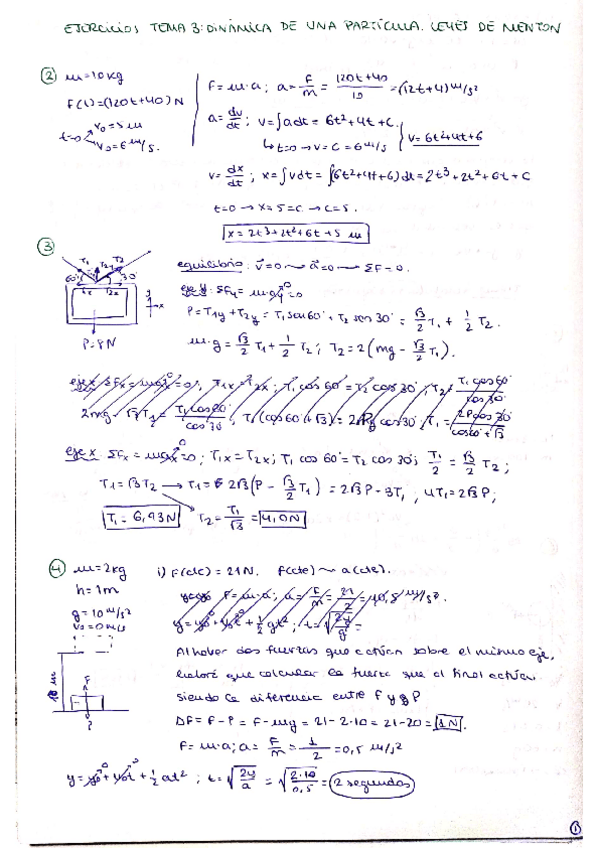 EJERCICIOS TEMA 3: DINÁMICA DE UNA PARTÍCULA. LEYES DE NEWTON
② m=10kg
F(t)=(120t+40)N
t=0 x₀=5 m
v₀=6 m/s.
F=m·a; a=F/m = (120t+40)/10 = (12t+4) m/s²
a=dv/dt; v=∫adt = 6t²+4t+C.
↳ t=0 → v=C=6 m/s } v=6t²+4t+6
v=dx/dt; x=∫vdt = ∫(6t²+4t+6)dt = 2t³+2t²+6t+C
t=0 → x=5=C → C=5.
x=2t³+2t²+6t+5 m
③
T₁ T₁y T₂y T₂
60° 30°
T₁x T₂x
y
x
P=8N
equilibrio: v=0 → a=0 → ΣF=0.
eje y: ΣFy = m·ay=0
P=T₁y+T₂y = T₁ sen60°+T₂ sen 30° = √3/2 T₁ + 1/2 T₂.
m·g = √3/2 T₁ + 1/2 T₂; T₂=2(mg - √3/2 T₁).
eje x: ΣFx = max=0; T₁x=T₂x; T₁ cos 60°=T₂ cos 30°; T₂ = T₁ cos 60°/cos 30°
2mg - √3 T₁ = T₁ cos 60°/cos 30°; T₁(cos 60+√3) = 2Pg cos 30; T₁ = 2P cos 30°/cos 60+√3
eje x: ΣFx = max⁰=0; T₁x=T₂x; T₁ cos 60°=T₂ cos 30°; T₁/2 = √3/2 T₂;
T₁=√3T₂ → T₁= 2√3(P - √3/2 T₁) = 2√3P - 3T₁; 4T₁=2√3P;
T₁=6,93N T₂=T₁/√3 = 4,0N
④ m=2kg
h=1m
g=10 m/s²
v₀=0 m/s
F
P
i) F(cte) = 21N. F(cte) → a(cte).
F=m·a; a=F/m = 21/2 = 10,5 m/s².
y=y₀+v₀t+1/2 gt²; t=√(2y/g) =
Al haber dos fuerzas que actúan sobre el mismo eje,
habrá que calcular la fuerza que al final actúa
siendo la diferencia entre F y P
DF= F-P = F-mg = 21-2·10 = 21-20 = 1N.
F=m·a; a=F/m = 1/2 = 0,5 m/s²
y=y₀⁰+v₀t⁰+1/2 at²; t=√(2y/a) = √(2·10/0,5) = 2 segundos
①